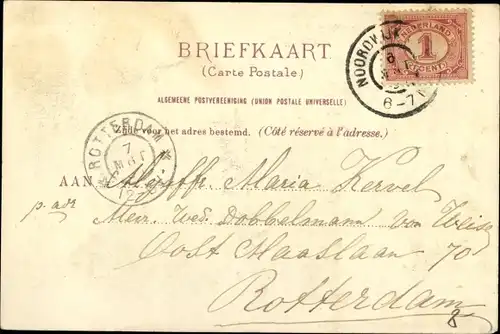 BRIEFKAART
(Carte Postale)
ALGEMEENE POSTVEREENIGING (UNION POSTALE UNIVERSELLE)
Zijde voor het adres bestemd. (Côté réservé à l'adresse.)
NEDERLAND
1
CENT
NOORDWIJK
6
6-7
ROTTERDAM
7
AAN Mejuffr. Maria Kervel
p. adr. Mevr. Wed. Dobbelmann von
Oost Maaslaan 70
Rotterdam
8